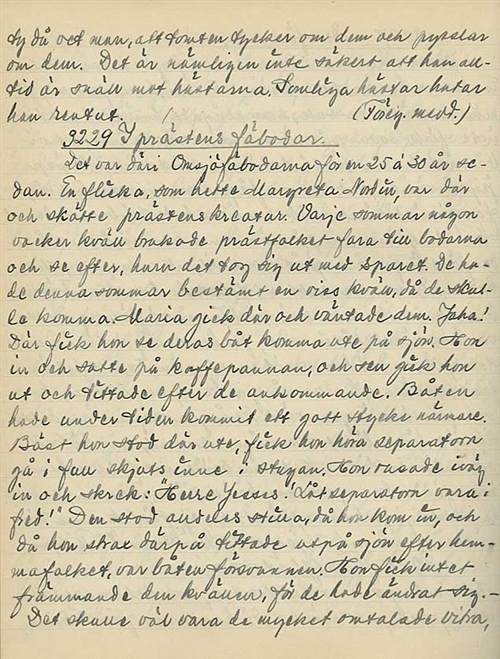 ty då vet man, att tomten tycker om dem och pysslar
om dem. Det är nämligen inte säkert att han all-
tid är snäll mot hästarna. Somliga hästar hatar
han rentut. (Föreg. medd.)
3229 I prästens fäbodar.
Det var däri Omsjöfäbodarna för en 25 à 30 år se-
dan. En flicka, som hette Margreta Nordin, var där
och skötte prästens kreatur. Varje sommar någon
vacker kväll brukade prästfolket fara till bodarna
och se efter, huru det tog sig ut med sparet. De ha-
de denna sommar bestämt en viss kväll, då de skul-
le komma. Maria gick där och väntade dem. Jaha!
Där fick hon se deras båt komma ute på sjön. Hon
in och satte på kaffepannan, och sen gick hon
ut och tittade efter de ankommande. Båten
hade under tiden kommit ett gott stycke närmare.
Bäst hon stod där ute, fick hon höra separatorn
gå i full skjuts inne i stugan. Hon rusade iväg
in och skrek: "Herre Jesses! Låt separatorn vara i
fred!" Den stod alldeles stilla, då hon kom in, och
då hon strax därpå tittade utpå sjön efter hem-
mafolket, var båten försvunnen. Hon fick intet
främmande den kvällen, för de hade ändrat sig.-
Det skulle väl vara de mycket omtalade vitra,